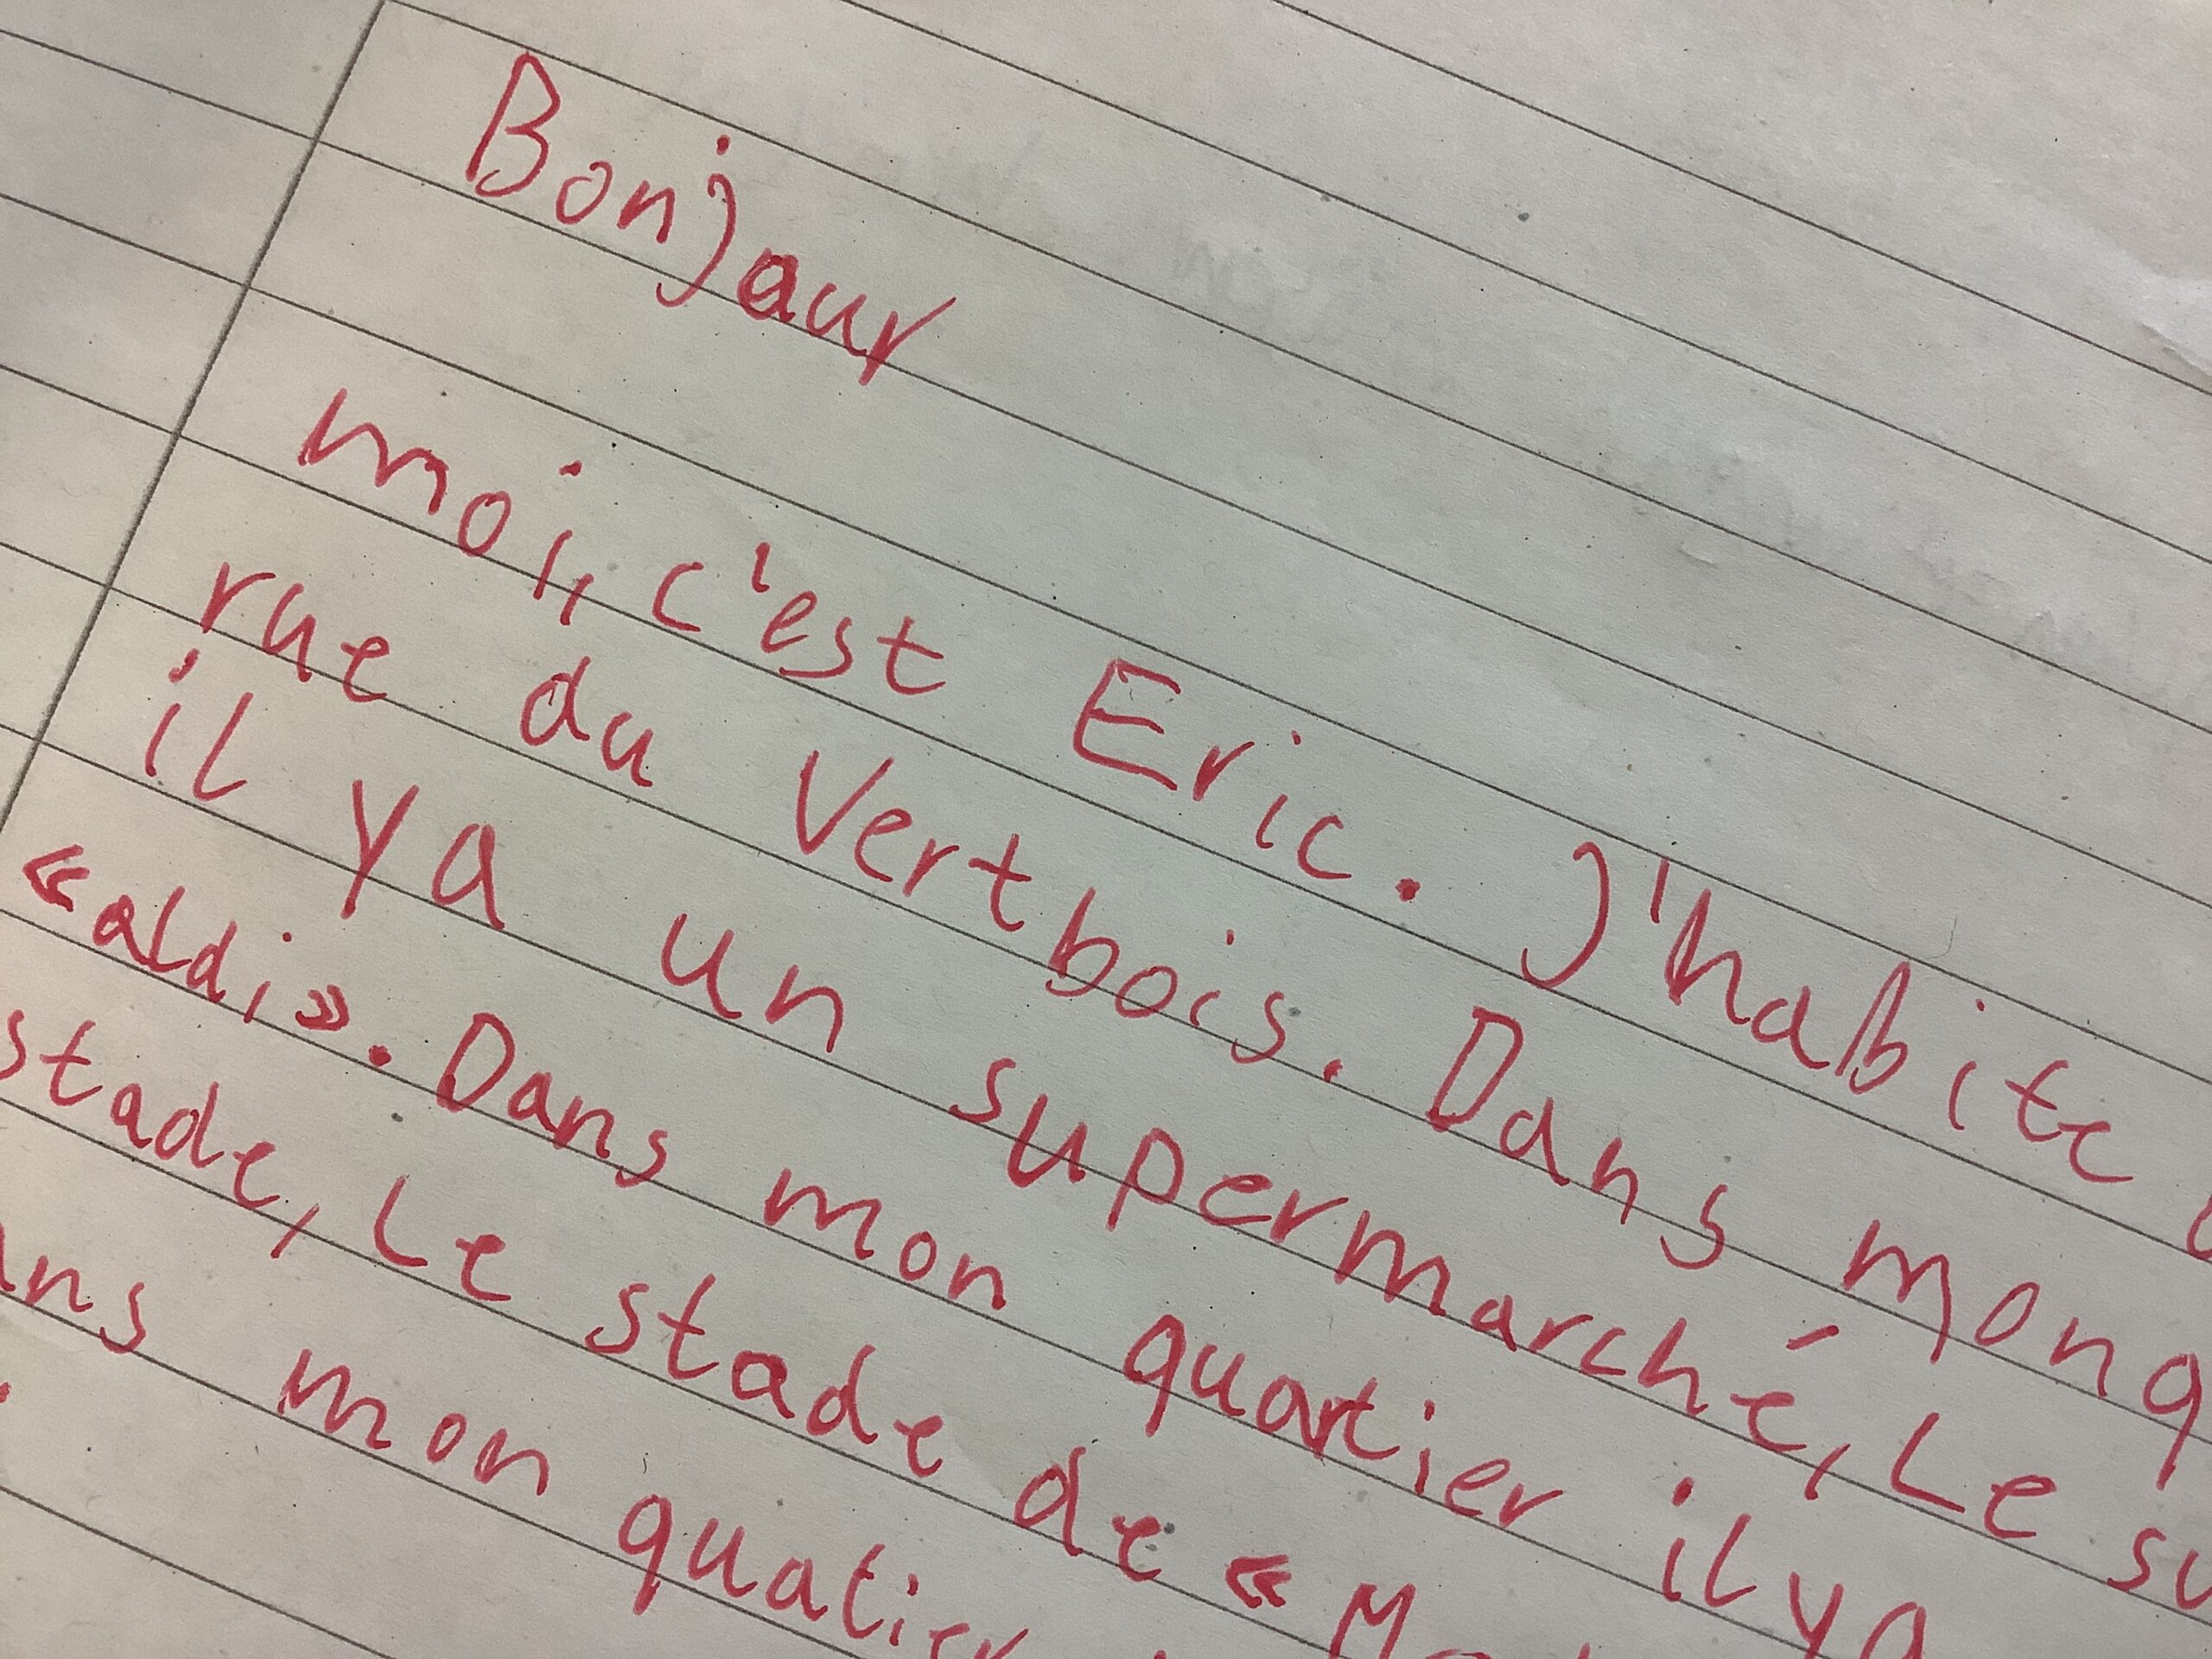 Bonjaur
moi, c'est Eric. J'habite
rue du Vertbois. Dans mon
il y a un supermarché, Le
«aldi». Dans mon quartier il y a
stade, Le stade de «
mon quatier